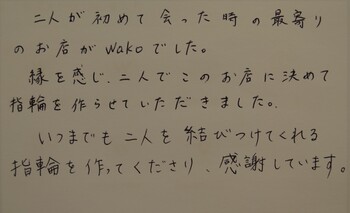 二人が初めて会った時の最寄り
のお店がwakoでした。
縁を感じ、二人でこのお店に決めて
指輪を作らせていただきました。
いつまでも二人を結びつけてくれる
指輪を作ってくださり、感謝しています。